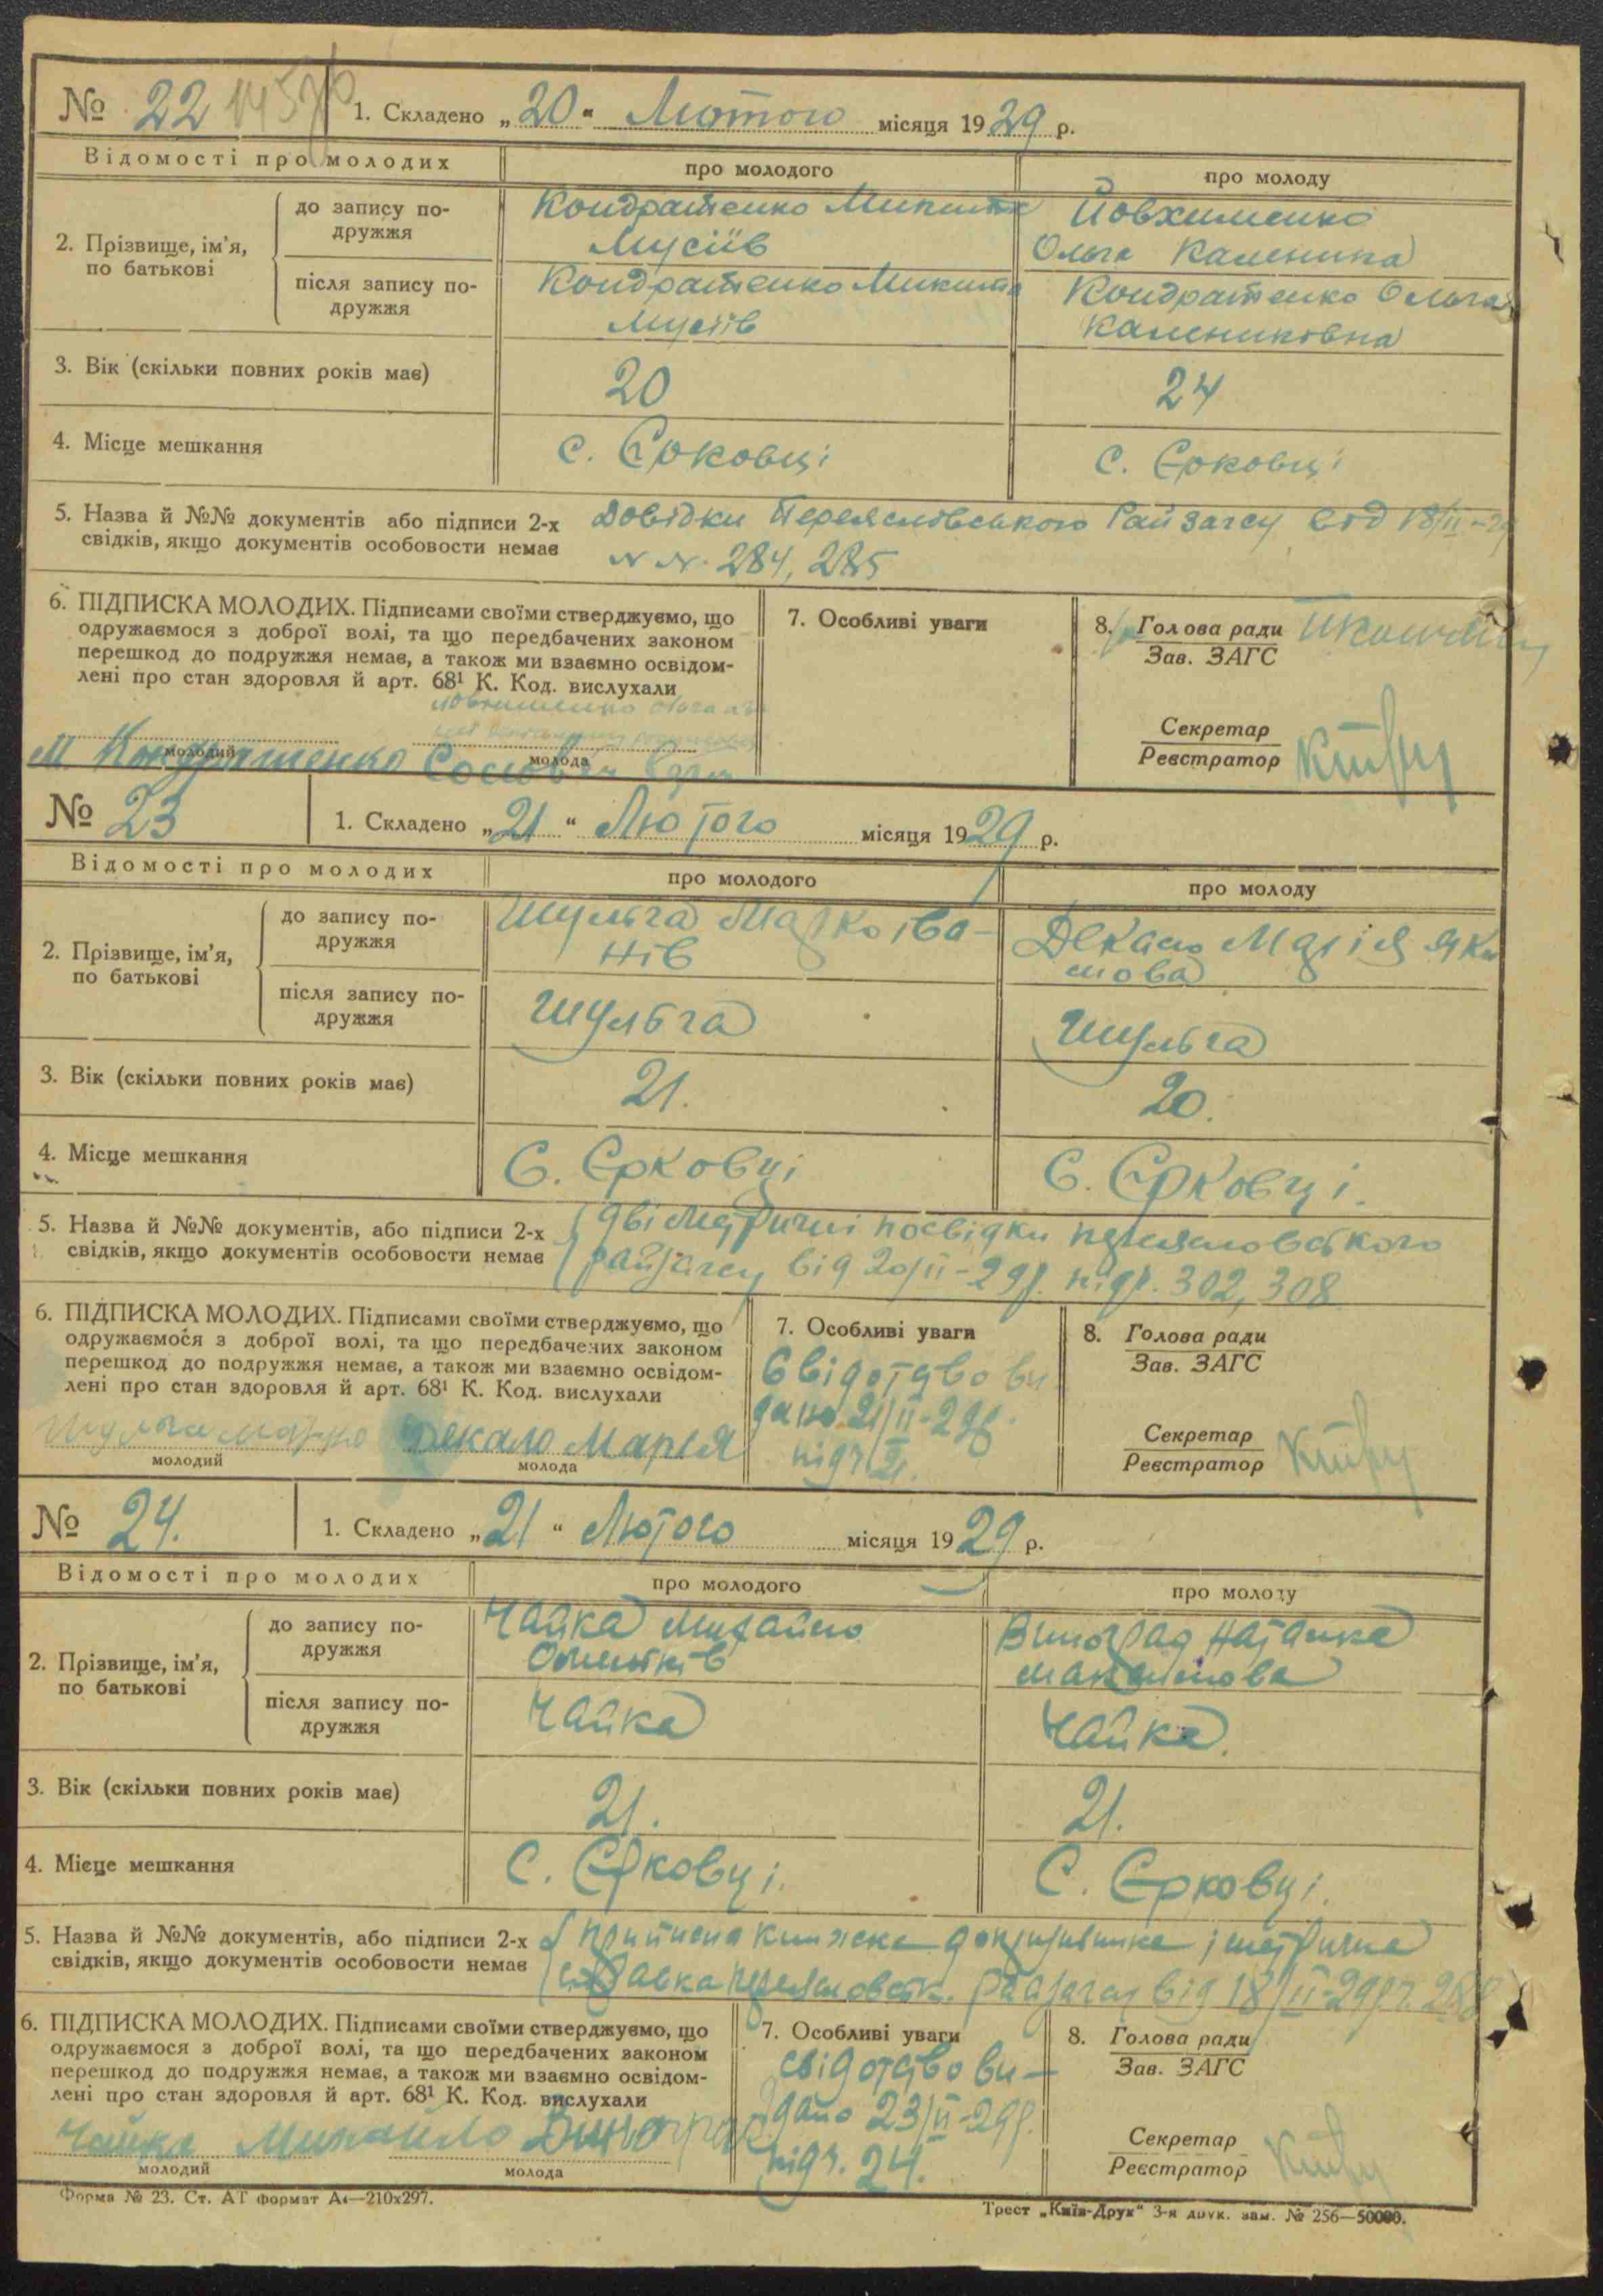 № 22 1. Складено „20“ Лютого місяця 1929 р.
Відомості про молодих про молодого про молоду
2. Прізвище, ім’я, по батькові
до запису подружжя
Кондратенко Микита
Мусіїв
Йовхименко
Ольга Каленика
після запису подружжя
Кондратенко Микита
Мусіїв
Кондратенко Ольга
Калениковна
3. Вік (скільки повних років має) 20 24
4. Місце мешкання с. Єрковці с. Єрковці
5. Назва й №№ документів або підписи 2-х
свідків, якщо документів особовости немає
Довідки Переяславського Райзагсу від 18/II-29
N N. 284, 285
6. ПІДПИСКА МОЛОДИХ. Підписами своїми стверджуємо, що
одружаємося з доброї волі, та що передбачених законом
перешкод до подружжя немає, а також ми взаємно освідом-
лені про стан здоровля й арт. 68¹ К. Код. вислухали
М. Кондратенко
молодий молода
7. Особливі уваги
8. Голова ради
Зав. ЗАГС
Секретар
Реєстратор
№ 23 1. Складено „21“ Лютого місяця 1929 р.
Відомості про молодих про молодого про молоду
2. Прізвище, ім’я, по батькові
до запису подружжя
Шульга Марко Іва-
нів
Декало Марія Яки
мова
після запису подружжя
Шульга
Шульга
3. Вік (скільки повних років має) 21. 20.
4. Місце мешкання С. Єрковці С. Єрковці.
5. Назва й №№ документів, або підписи 2-х
свідків, якщо документів особовости немає
дві метричні посвідки переяславського
райзагсу від 20/II-29р. 302, 308.
6. ПІДПИСКА МОЛОДИХ. Підписами своїми стверджуємо, що
одружаємося з доброї волі, та що передбачених законом
перешкод до подружжя немає, а також ми взаємно освідом-
лені про стан здоровля й арт. 68¹ К. Код. вислухали
Шульга Марко Декало Марія
молодий молода
7. Особливі уваги
Свідотдво ви
дано 21/II-29р.
8. Голова ради
Зав. ЗАГС
Секретар
Реєстратор
№ 24. 1. Складено „21“ Лютого місяця 1929 р.
Відомості про молодих про молодого про молоду
2. Прізвище, ім’я, по батькові
до запису подружжя
Чайка Михайло
Виноград Наталка
Максимова
після запису подружжя
Чайка
Чайка.
3. Вік (скільки повних років має) 21. 21.
4. Місце мешкання С. Єрковці. С. Єрковці.
5. Назва й №№ документів, або підписи 2-х
свідків, якщо документів особовости немає
приписна книжка допризивника і метрична
райзагсу від 18/II-29р. 288
6. ПІДПИСКА МОЛОДИХ. Підписами своїми стверджуємо, що
одружаємося з доброї волі, та що передбачених законом
перешкод до подружжя немає, а також ми взаємно освідом-
лені про стан здоровля й арт. 68¹ К. Код. вислухали
Чайка Михайло Виноград
молодий молода
7. Особливі уваги
свідотство ви-
дано 23/II-29р.
24.
8. Голова ради
Зав. ЗАГС
Секретар
Реєстратор
Форма № 23. Ст. АТ формат А4—210х297. Трест „Київ-Друк“ 3-я друк. зам. № 256—50000.